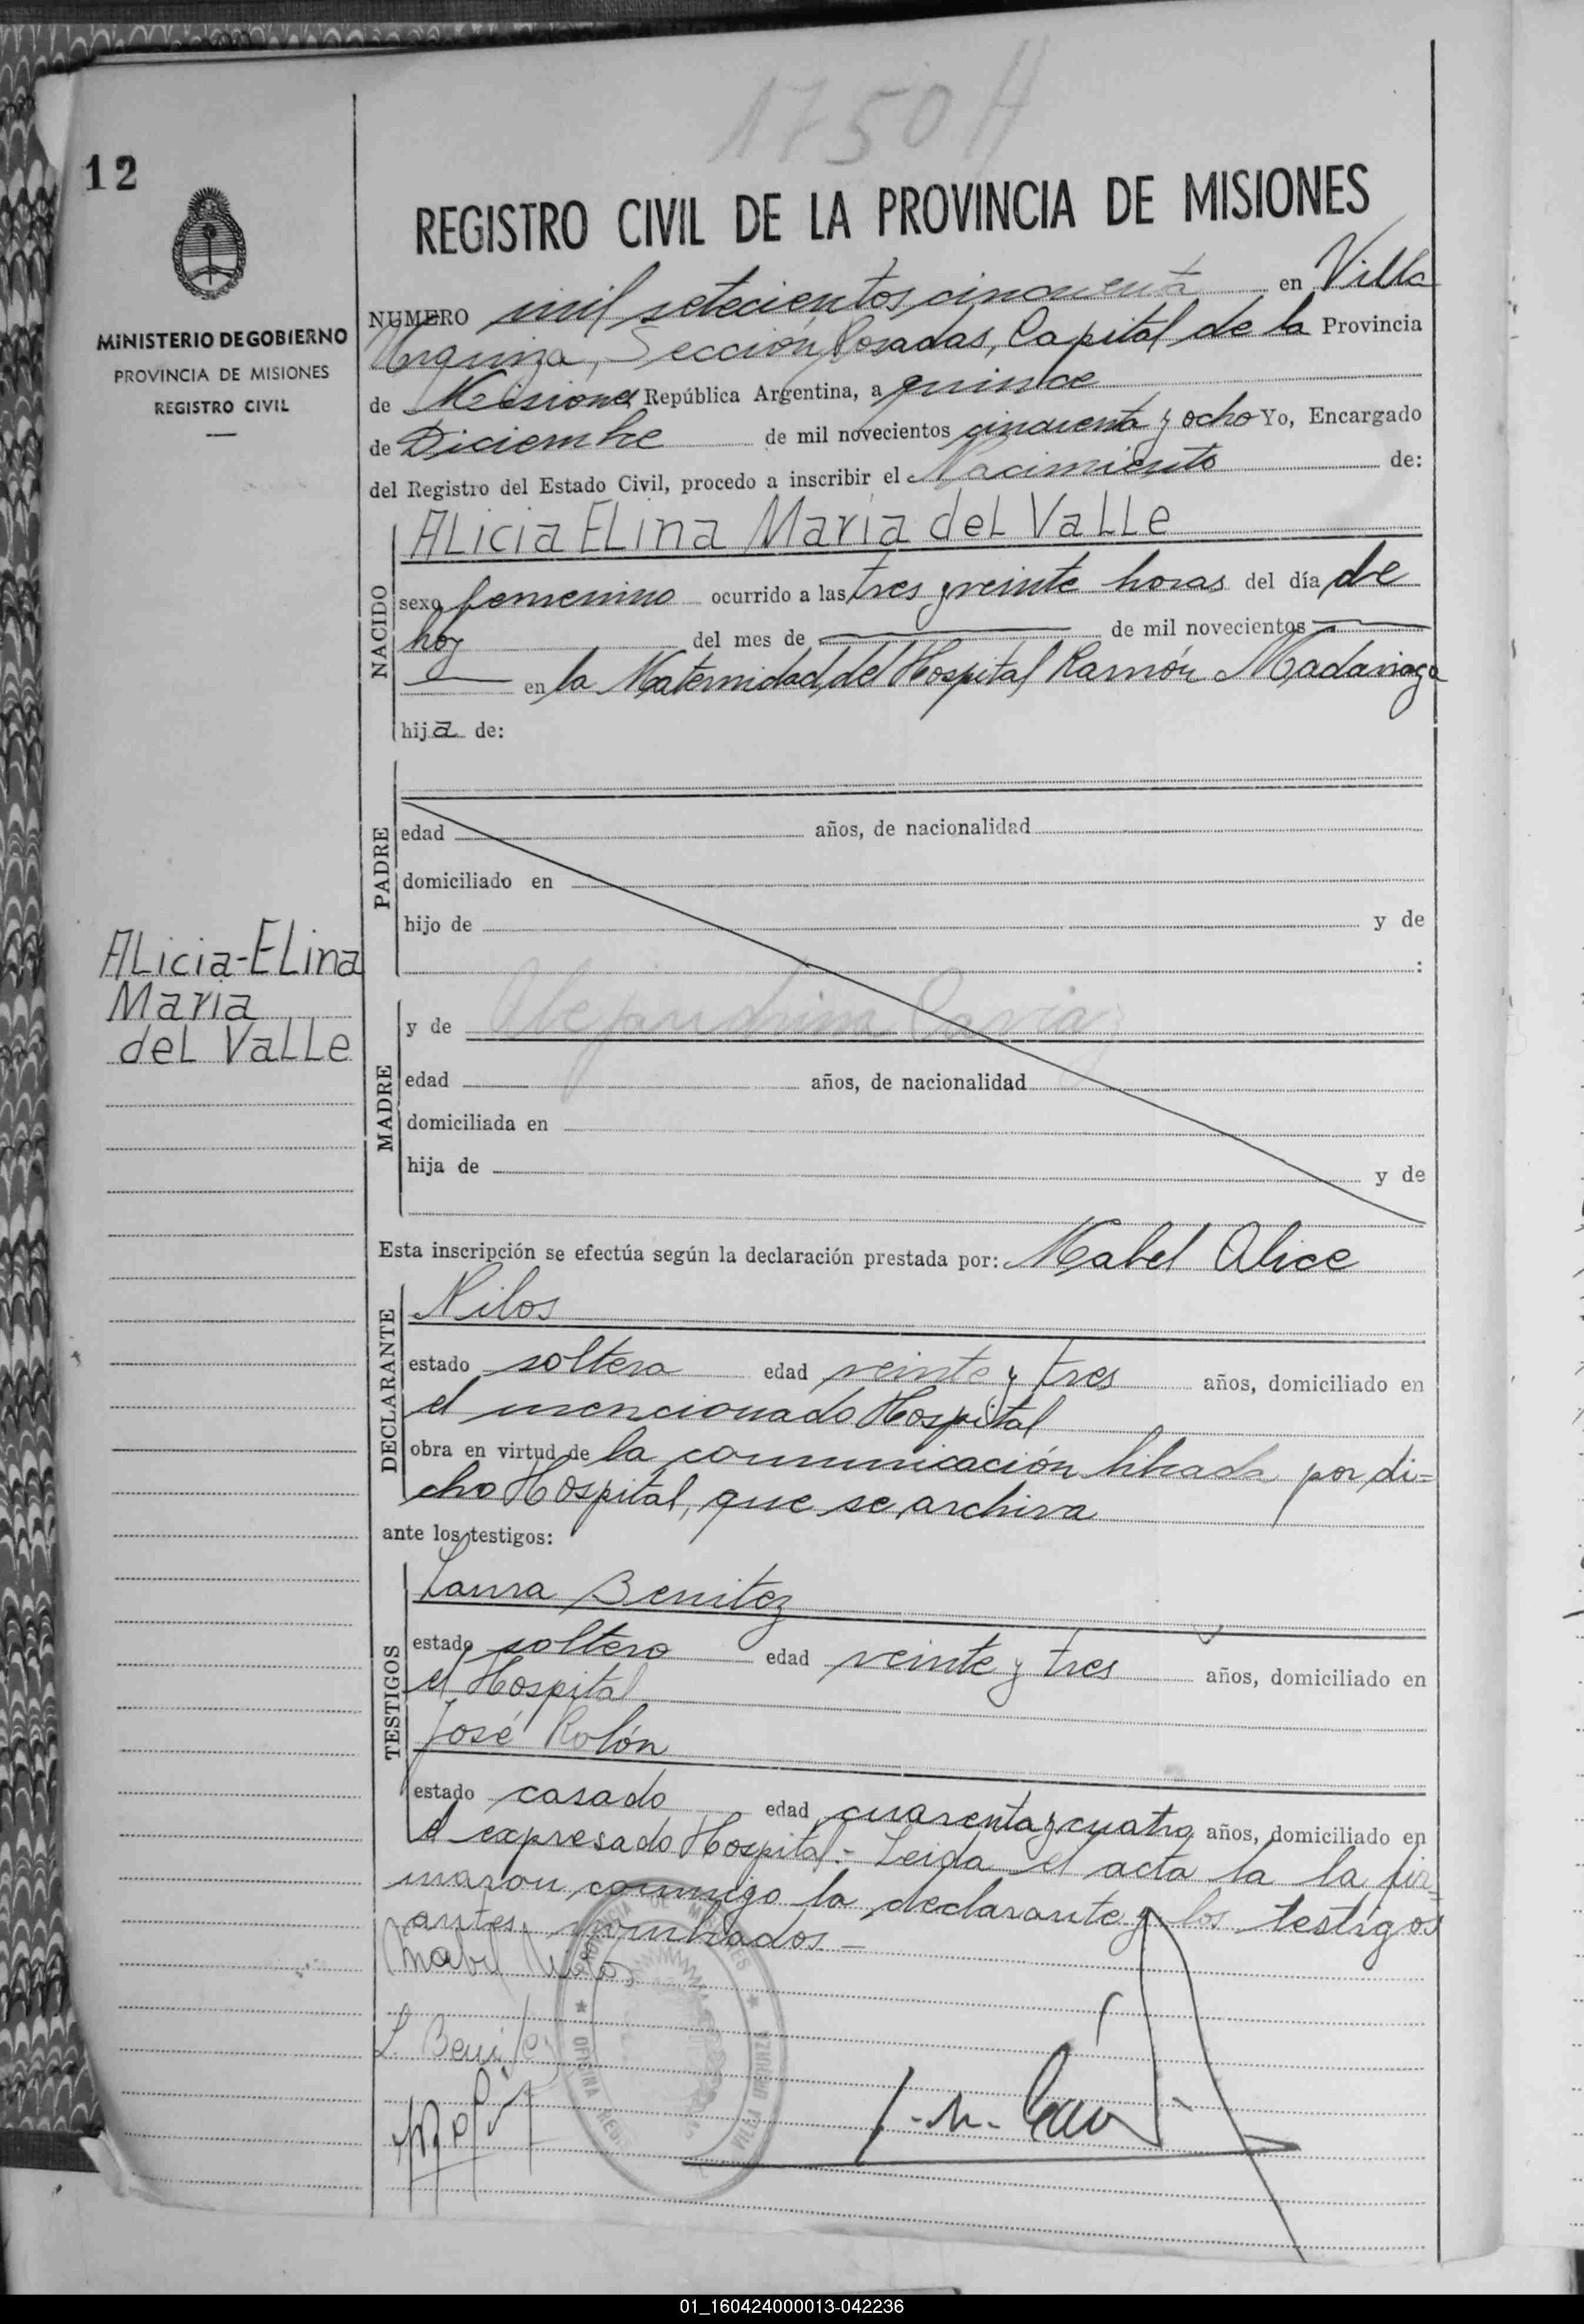 1750 H
12
REGISTRO CIVIL DE LA PROVINCIA DE MISIONES
MINISTERIO DE GOBIERNO
PROVINCIA DE MISIONES
REGISTRO CIVIL
NUMERO mil setecientos cincuenta en Villa
Urquiza, Sección Posadas, Capital de la Provincia
de Misiones República Argentina, a quince
de Diciembre de mil novecientos cincuenta y ocho Yo, Encargado
del Registro del Estado Civil, procedo a inscribir el Nacimiento de:
NACIDO
ALicia ELina Maria deL VaLLe
sexo femenino ocurrido a las tres y veinte horas del día de
hoy del mes de de mil novecientos
en la Maternidad del Hospital Ramón Madariaga
hija de:
PADRE
edad años, de nacionalidad
domiciliado en
hijo de y de
:
ALicia-ELina
Maria
deL VaLLe
MADRE
y de Alejandrina
edad años, de nacionalidad
domiciliada en
hija de y de
Esta inscripción se efectúa según la declaración prestada por: Mabel Alice
DECLARANTE
Nilos
estado soltera edad veinte y tres años, domiciliado en
el mencionado Hospital
obra en virtud de la comunicación librada por di=
cho Hospital, que se archiva
ante los testigos:
TESTIGOS
Laura Benitez
estado soltero edad veinte y tres años, domiciliado en
el Hospital
José Rolón
estado casado edad cuarenta y cuatro años, domiciliado en
el expresado Hospital.- Leida el acta la la fir=
maron conmigo la declarante y los testigos
antes nombrados-
Mabel Nilos
L. Benitez
PROVINCIA DE MISIONES
OFICINA REG
VILLA URQUIZA
01_160424000013-042236